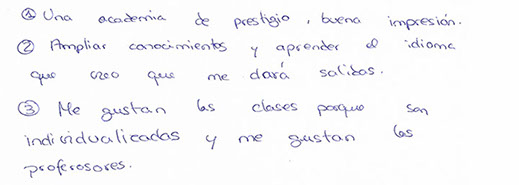 ① Una academia de prestigio, buena impresión.
② Ampliar conocimientos y aprender el idioma
que creo que me dará salidas.
③ Me gustan las clases porque son
individualizadas y me gustan los
proferosores.